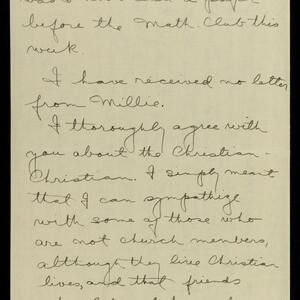 before the Math. Club this
week.
I have received no letter
from Millie.
I thoroughly agree with
you about the Christian-
Christian. I simply meant
that I can sympathize
with some of those who
are not church members,
although they live Christian
lives, and that friends